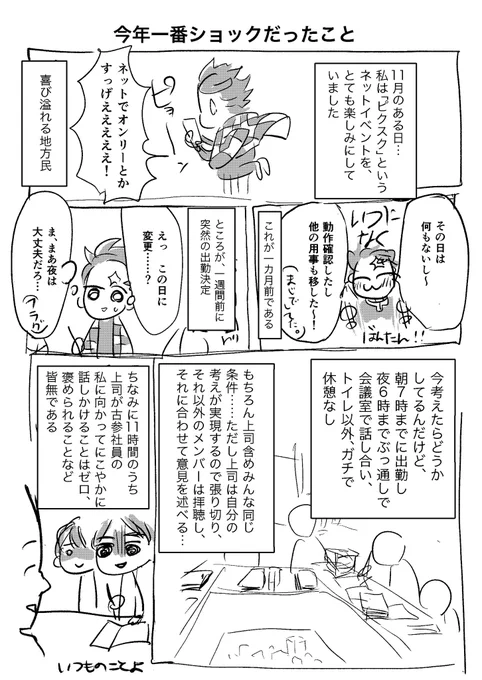 今年一番ショックだったこと
11月のある日…
私は「ピクスク」という
ネットイベントを、
とても楽しみにして
いました
ネットでオンリーとか
すっげえええええ！
喜び溢れる地方民
その日は
何もないし〜
動作確認したし
他の用事も移した〜！
いつに
なく
まじでした。
ばんたん!!
これが一カ月前である
ところが、一週間前に
突然の出勤決定
えっ この日に
変更……？
ま、まあ夜は
大丈夫だろ…
フラグ
今考えたらどうか
してるんだけど、
朝7時までに出勤し
夜6時までぶっ通しで
会議室で話し合い、
トイレ以外、ガチで
休憩なし
もちろん上司含めみんな同じ
条件……ただし上司は自分の
考えが実現するので張り切り、
それ以外のメンバーは拝聴し、
それに合わせて意見を述べる…
ちなみに11時間のうち
上司が古参社員の
私に向かってにこやかに
話しかけることはゼロ、
褒められることなど
皆無である
いつものことよ